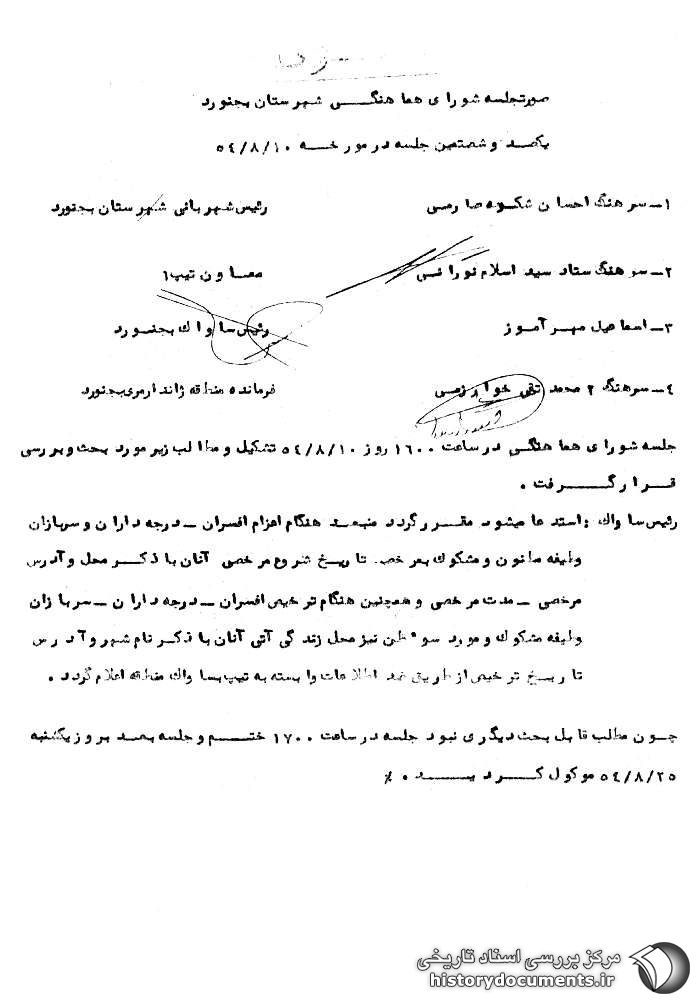 صورتجلسه شورای هماهنگی شهرستان بجنورد
یکصد و شصتمین جلسه در مورخه ۵۴/۸/۱۰
۱ـ سرهنگ احسان شکوه صارمی رئیس شهربانی شهرستان بجنورد
۲ـ سرهنگ ستاد سید اسلام نورانی معاون تیپ ۱
۳ـ اسماعیل مهرآموز رئیس ساواک بجنورد
۴ـ سرهنگ ۲ محمد تقی خوارزمی فرمانده منطقه ژاندارمری بجنورد
جلسه شورای هماهنگی در ساعت ۱۶۰۰ روز ۵۴/۸/۱۰ تشکیل و مطالب زیر مورد بحث و بررسی
قرار گرفت .
رئیس ساواک : استدعا میشود مقرر گردد منبعد هنگام اعزام افسران ـ درجه داران و سربازان
وظیفه مظنون و مشکوک بمرخصی تاریخ شروع مرخصی آنان با ذکر محل و آدرس
مرخصی ـ مدت مرخصی و همچنین هنگام ترخیص افسران ـ درجه داران ـ سربازان
وظیفه مشکوک و مورد سوءظن نیز محل زندگی آتی آنان با ذکر نام شهر و آدرس
تاریخ ترخیص از طریق ضد اطلاعات وابسته به تیپ بساواک منطقه اعلام گردد .
چون مطلب قابل بحث دیگری نبود جلسه در ساعت ۱۷۰۰ ختم و جلسه بعد بروز یکشنبه
۵۴/۸/۲۵ موکول گردید . ٪
مرکز بررسی اسناد تاریخی
historydocuments.ir